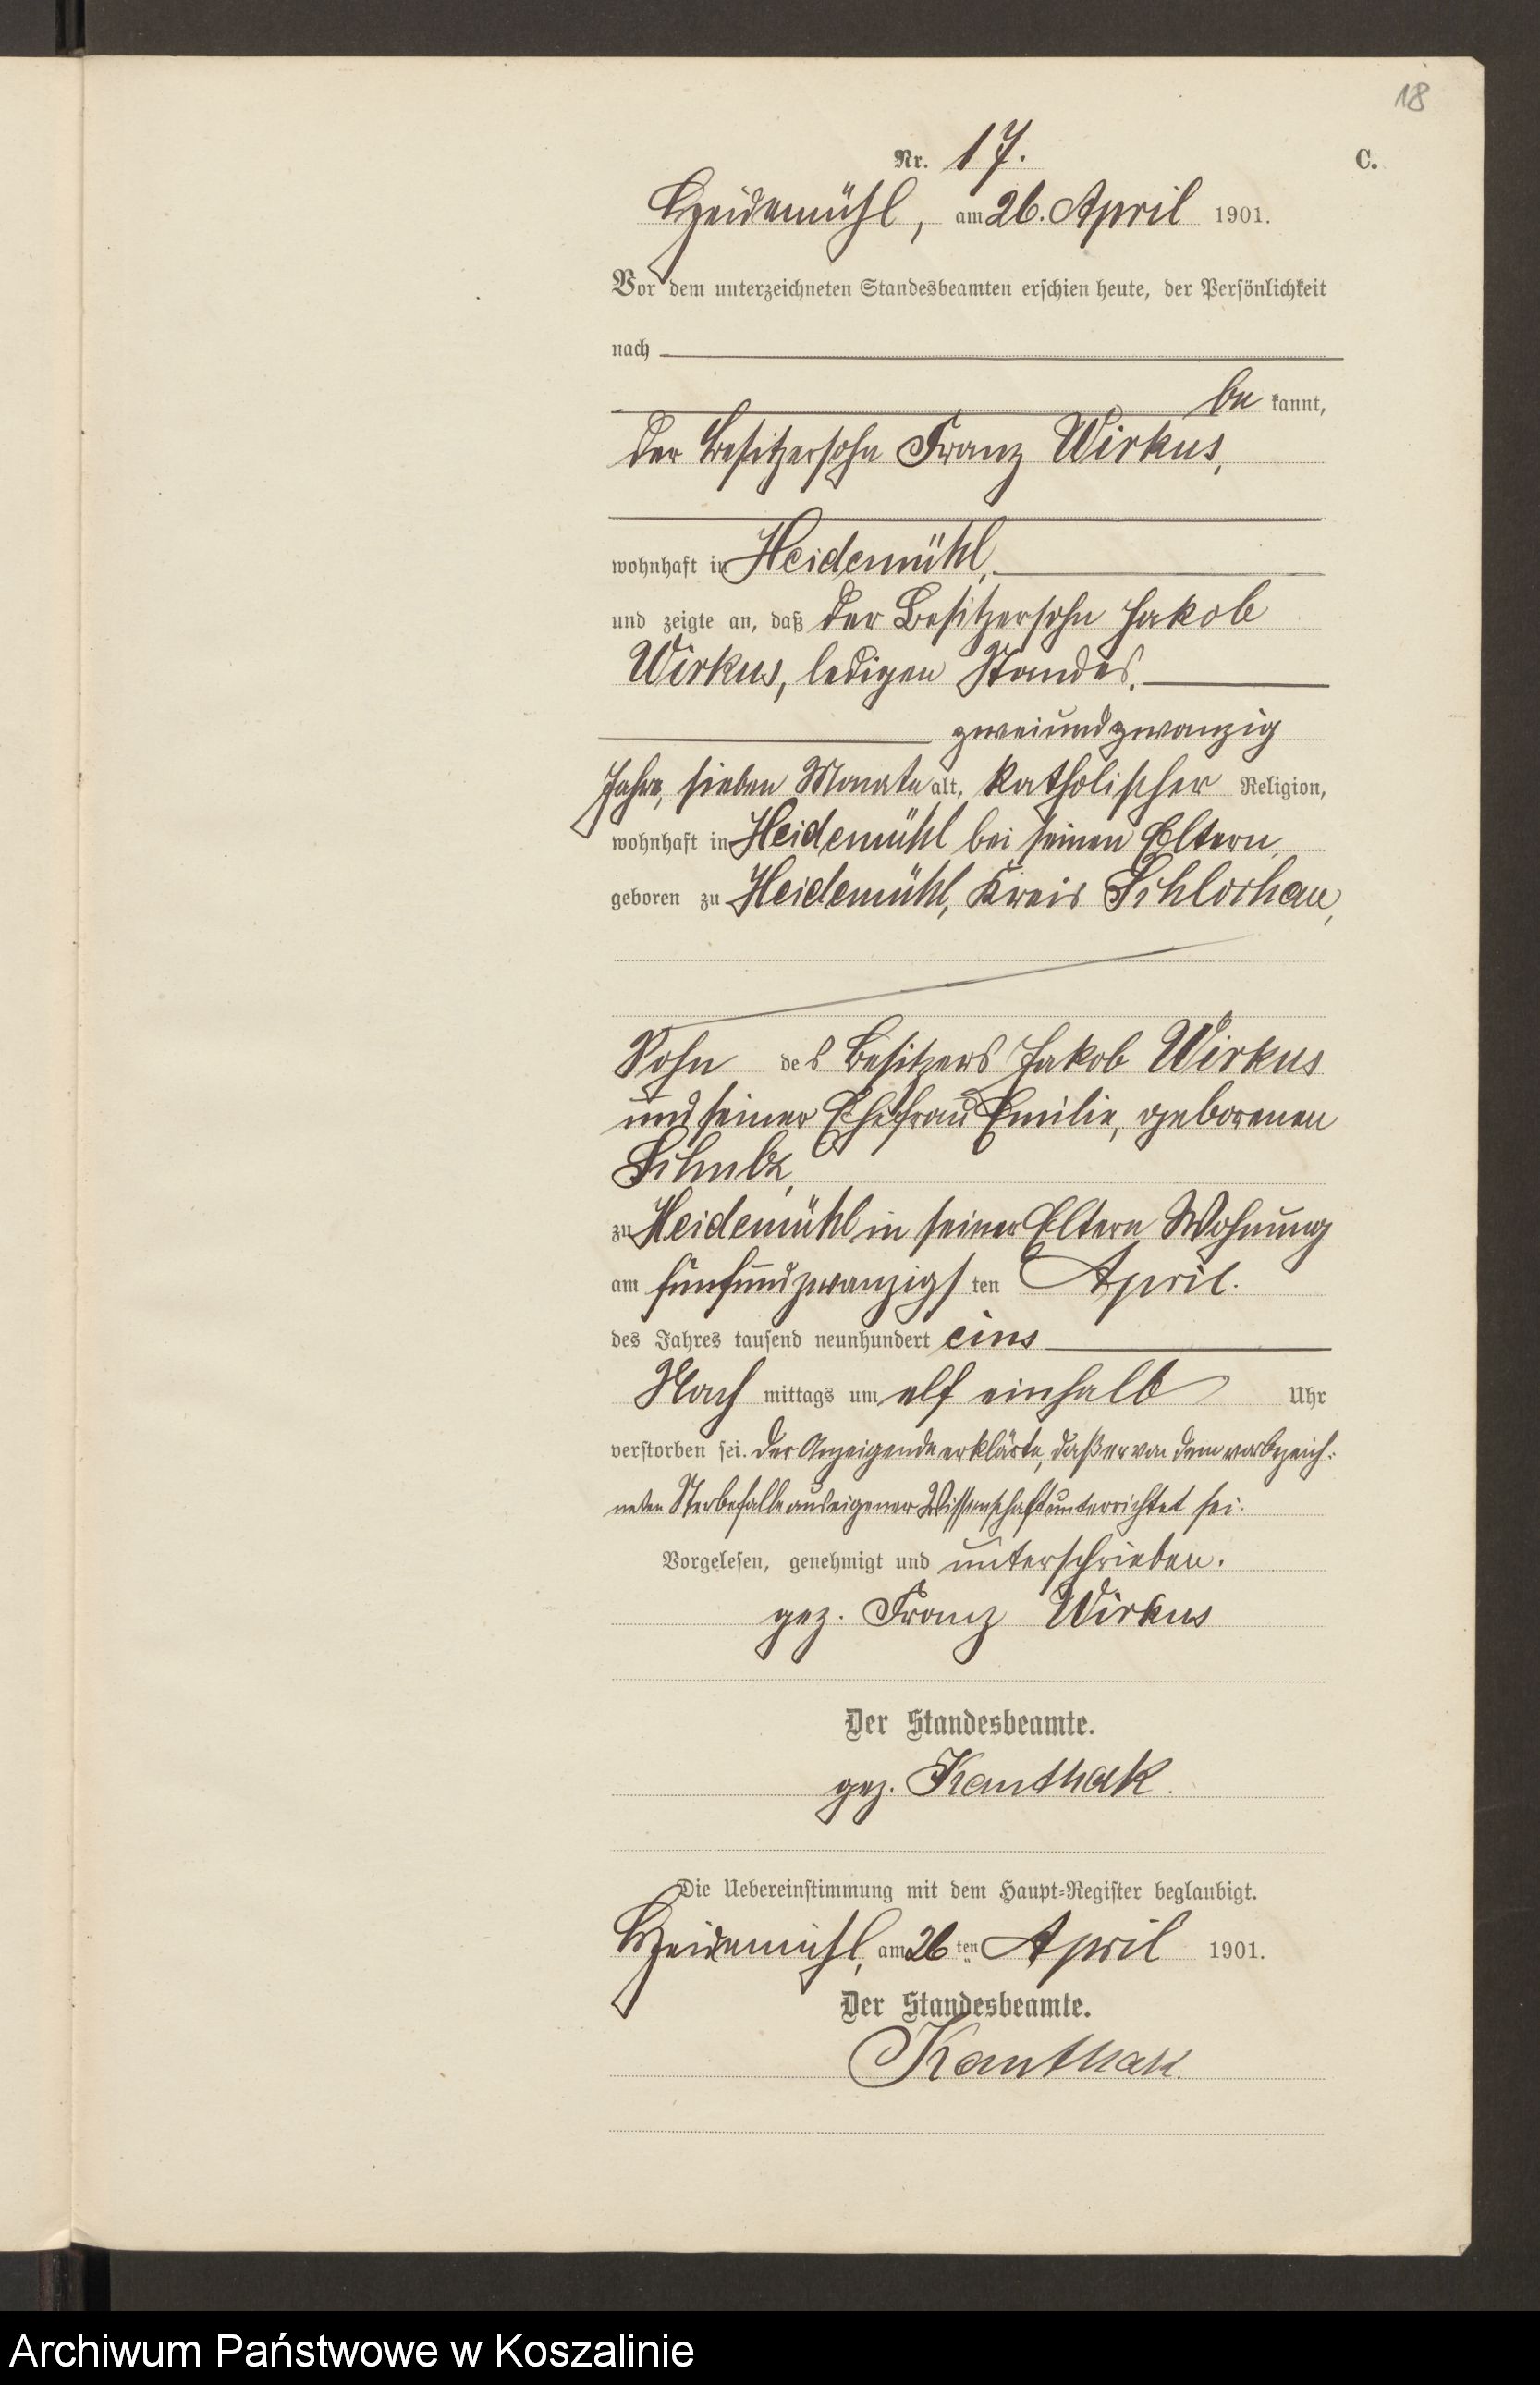 18
Nr. 17.
C.
Heidemühl, am 26. April 1901.
Vor dem unterzeichneten Standesbeamten erschien heute, der Persönlichkeit
nach
be kannt,
der Besitzersohn Franz Wirkus,
wohnhaft in Heidemühl,
und zeigte an, daß der Besitzersohn Jakob
Wirkus, ledigen Standes,
zweiundzwanzig
Jahre, sieben Monate alt, katholischer Religion,
wohnhaft in Heidemühl bei seinen Eltern,
geboren zu Heidemühl, Kreis Schlochau,
Sohn des Besitzers Jakob Wirkus
und seiner Ehefrau Emilie, geborenen
Schulz,
zu Heidemühl in seiner Eltern Wohnung
am fünfundzwanzigs ten April.
des Jahres tausend neunhundert eins
Nach mittags um elf einhalb Uhr
verstorben sei. Der Anzeigende erklärte, daß er von dem vorbezeich-
neten Sterbefalle aus eigener Wissenschaft unterrichtet sei.
Vorgelesen, genehmigt und unterschrieben.
gez. Franz Wirkus
Der Standesbeamte.
gez. Kanthak.
Die Uebereinstimmung mit dem Haupt-Register beglaubigt.
Heidemühl, am 26 ten April 1901.
Der Standesbeamte.
Kanthak.
Archiwum Państwowe w Koszalinie